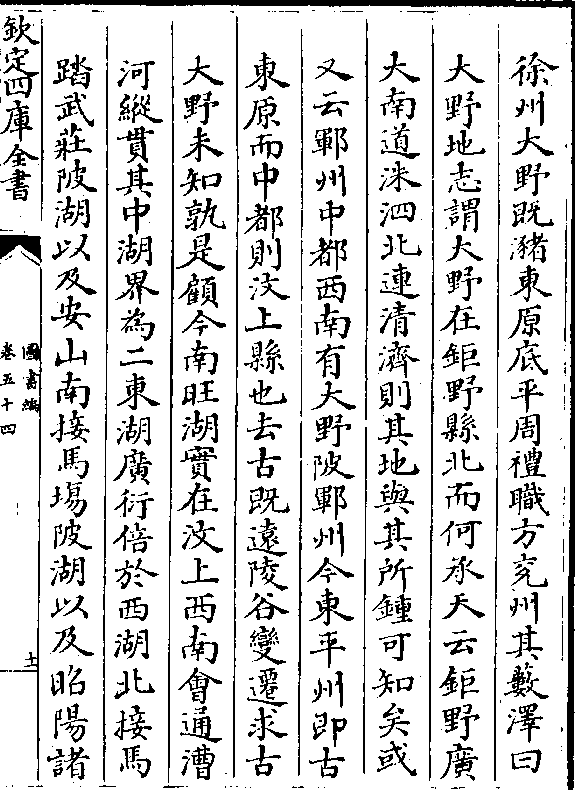 徐州大野既瀦東原底平周禮職方兖州其藪澤曰
大野地志謂大野在鉅野縣北而何承天云鉅野廣
大南道洙泗北連清濟則其地與其所鍾可知矣或
又云鄆州中都西南有大野陂鄆州今東平州即古
東原而中都則汶上縣也去古既遠陵谷變遷求古
大野未知孰是顧今南旺湖實在汶上西南會通漕
河縱貫其中湖界為二東湖廣衍倍於西湖北接馬
踏武莊陂湖以及安山南接馬塲陂湖以及昭陽諸
欽定四庫全書
圖書編
卷五十四
十